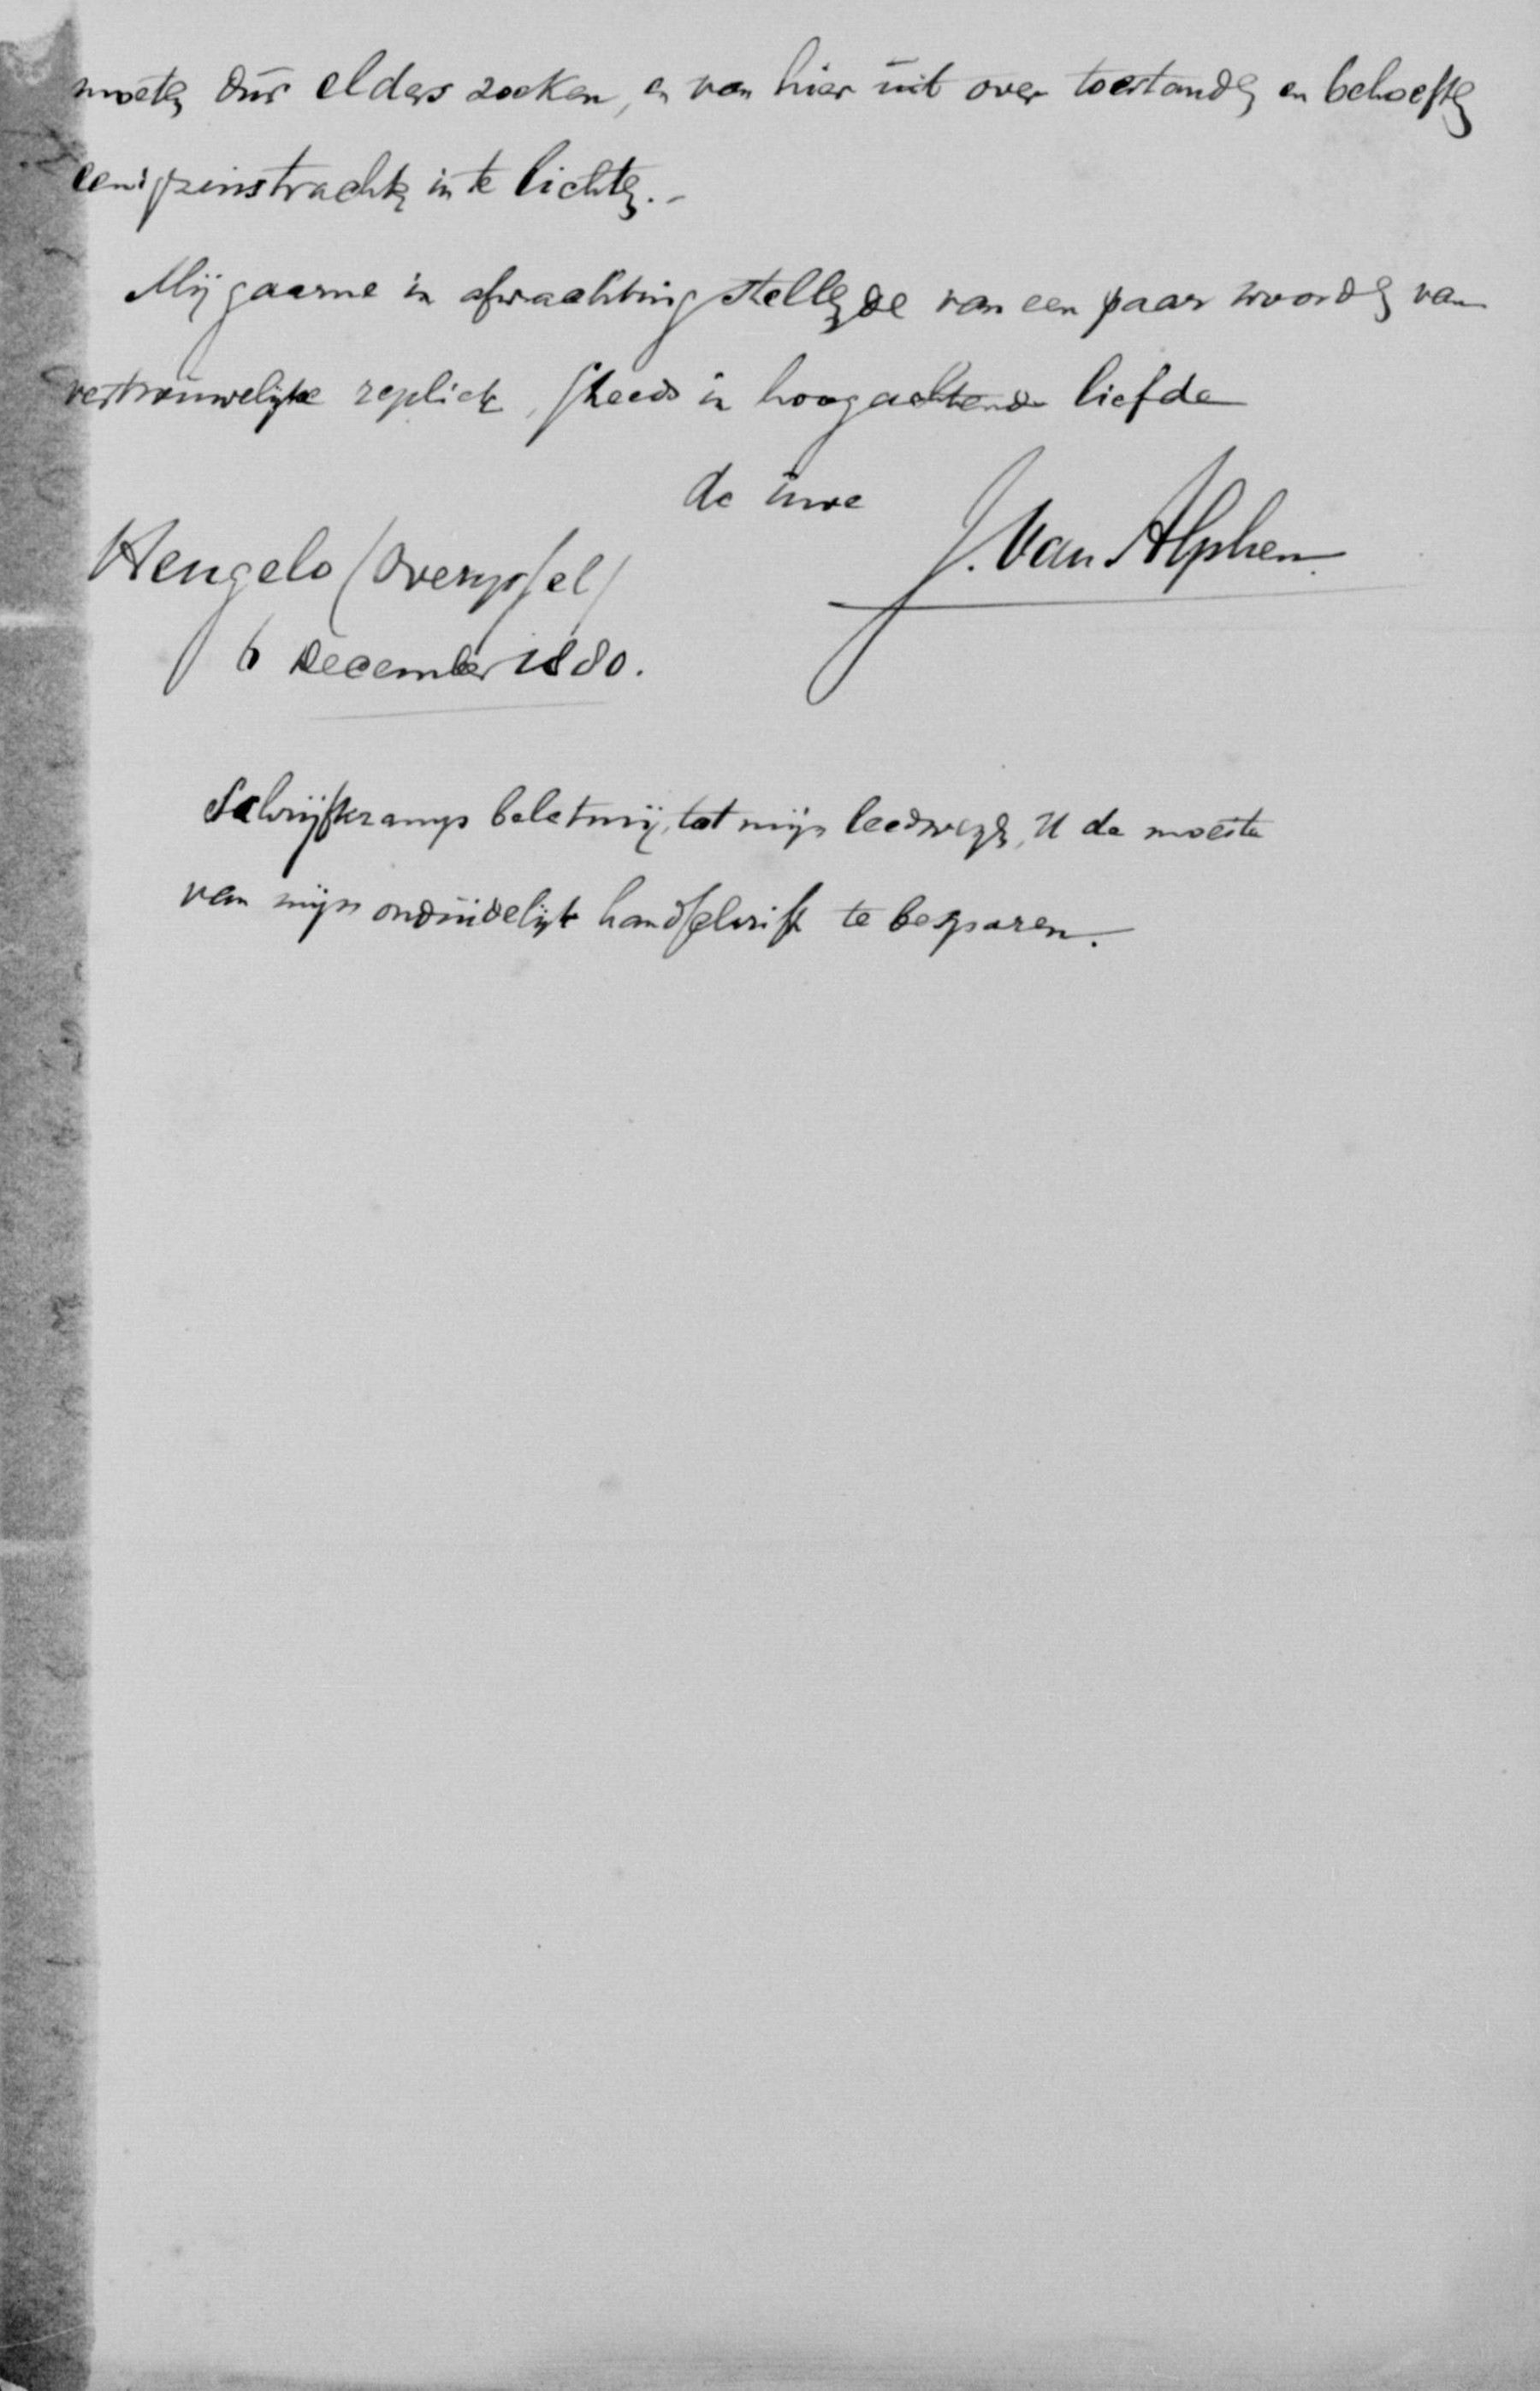 moeten dus elders zoeken, en van hier uit over toestanden en behoeften
eenigzins trachten in te lichten.-
Mij gaarne in afwachting stellende van een paar woorden van
vertrouwelijke repliek, steeds in hoogachtende liefde
de uwe J. Van Alphen
Hengelo (Overyssel)
6 December 1880.
Schrijfkramp belet mij, tot mijn leedwezen, U de moeite
van mijn onduidelijk handschrift te besparen.